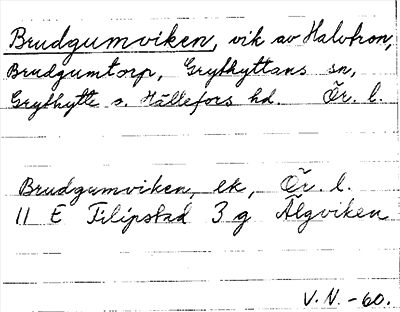 Brudgumviken, vik av Halvfron,
Brudgumtorp, Grythyttans sn,
Grythytte o. Hällefors hd. Ör. l.
Brudgumviken, ek, Ör. l.
11 E Filipstad 3 g Älgviken
V. N. -60.